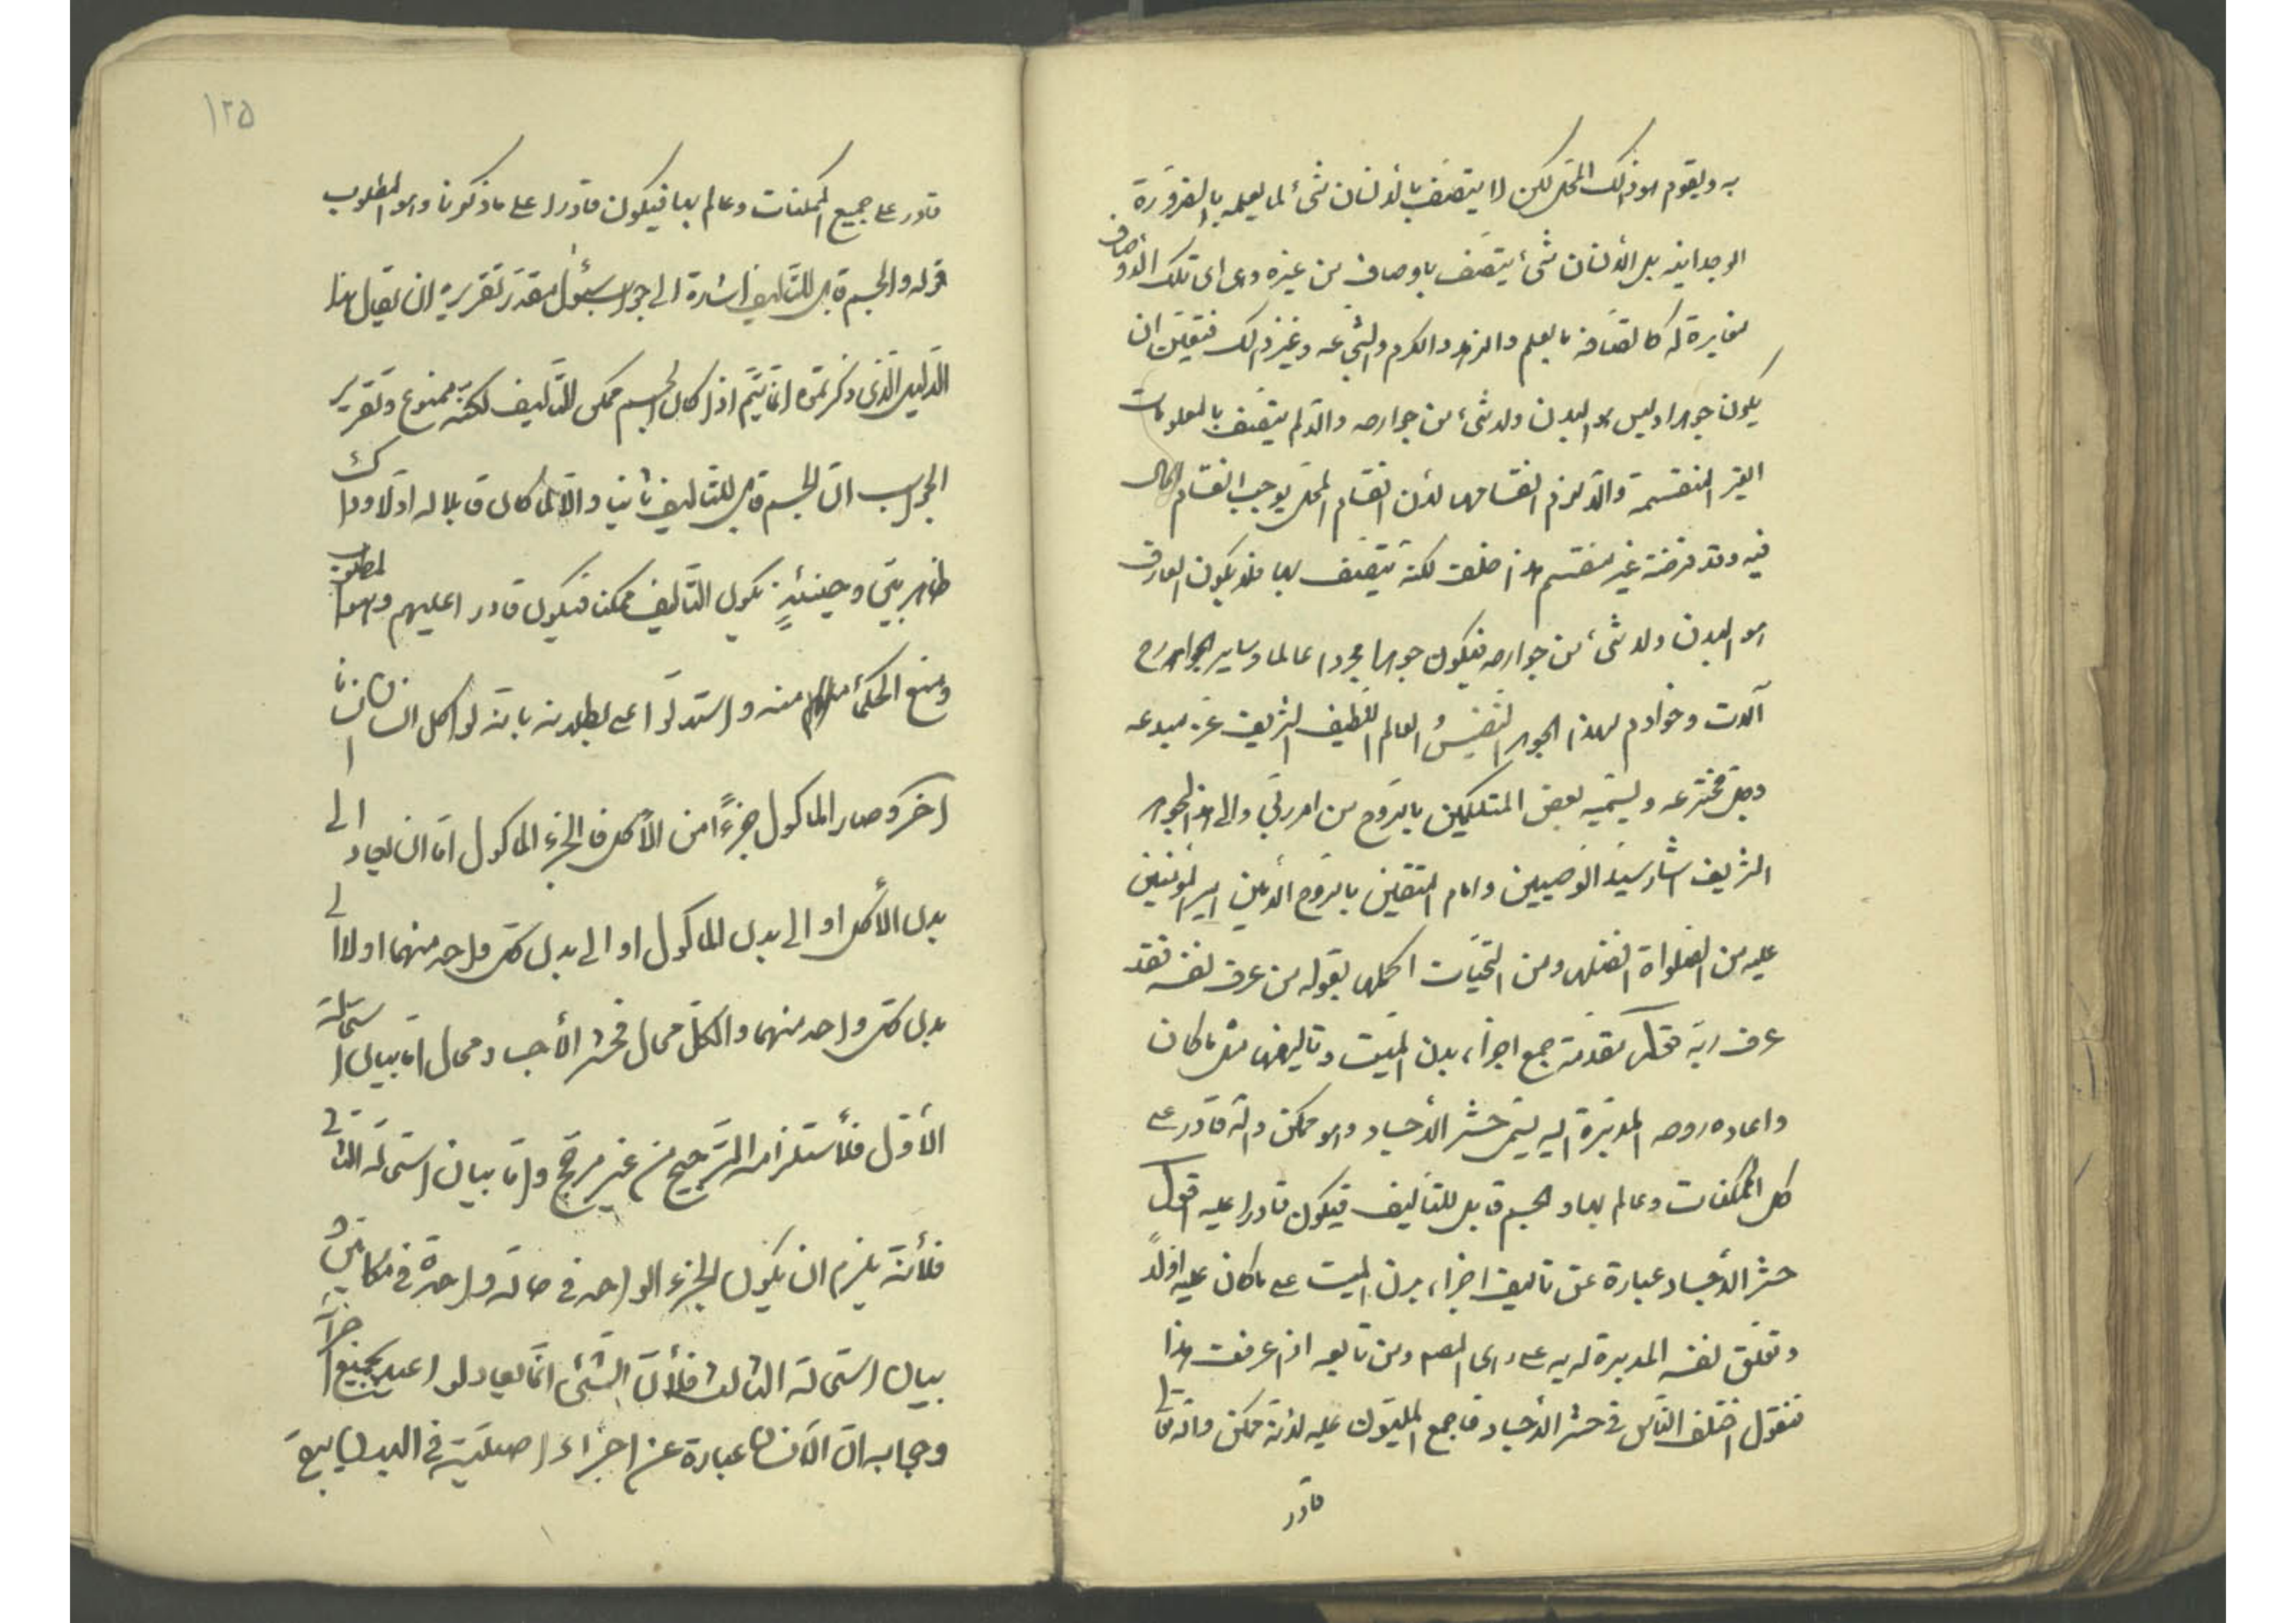 به ويقوم هو ذلك المحل لكن لا يتصف بالانسان شئ لما يعلمه بالضرورة
الوجدانيه بل الأنسان شئ يتصف باوصاف من غيره وهى اى تلك الأوصاف
مغايرة له كاتصافه بالعلم والزهد والكرم والشجاعه وغير ذلك فتعين ان
يكون جوهرا وليس هو البدن ولا شئ من جوارحه والا لم يتصف بالمعلومات
الغير المنقسمة والا لزم انقسامها لأن انقسام المحل يوجب انقسام الحال
فيه وقد فرضته غير منقسم هذا خلف لكنه تتصف بها فلا يكون العارف
هو البدن ولا شئ من جوارحه فيكون جوهرا مجردا عالما وساير الجوارح
آلات وخوادم لهذا الجوهر النفيس العالم اللطيف الشريف عز مبدعه
وجل مخترعه ويسميه بعض المتكلمين بالروح من امر ربي والى هذا الجوهر
الشريف اشار سيد الوصيين وامام المتقين بالروح الأمين امير المؤمنين
عليه من الصلواة افضلها ومن التحيات اكملها بقوله من عرف نفسه فقد
عرف ربه مقدمة جمع اجزاء بدن الميت وتاليفها مثل ما كان
واعاده روحه المدبرة اليه يسمى حشر الأجساد وهو ممكن والله قادر على
كل الممكنات وعالم بها والجسم قابل للتأليف فيكون قادرا عليه اقول
حشر الأجساد عبارة عن تاليف اجزاء بدن الميت على ما كان عليه اولا
وتعلق نفسه المدبرة له به على راى المصم ومن تابعه اذا عرفت هذا
فنقول اختلف الناس في حشر الأجساد فاجمع المليون عليه لأنه ممكن والله تعالى
قادر
١٢٥
قادر على جميع الممكنات وعالم بها فيكون قادرا على ما ذكرنا وهو المطلوب
قوله والجسم قابل للتأليف اشارة الى جواب سئول مقدر تقريره ان يقال هذا
الدليل الذى ذكرتموه انما يتم اذا كان الجسم ممكن التأليف لكنه ممنوع وتقرير
الجواب ان الجسم قابل للتأليف ثانيا والا لما كان قابلا له اولا وذلك
ظاهر بين وحينئذٍ يكون التأليف ممكنا فيكون قادرا عليهم وهو المطلوب
ومنع الحكماء منه واستدلوا على بطلانه بانه لو اكل انسان انسانا
اخر وصار الماكول جزءاً من الأكل فالجزء الماكول اما ان يعاد الى
بدن الأكل او الى بدن الماكول او الى بدن كل واحد منهما او لا الى
بدن كل واحد منهما والكل محال فحشر الأجساد محال اما بيان استحالة
الأول فلأستلزامه الترجيح من غير مرجح واما بيان استحالة الثانى
فلأنه يلزم ان يكون الجزء الواحد في حالة واحدة في مكانين و
بيان استحالة الثالث فلأن الشئ انما يعاد لو اعيد بجميع اجزائه
وجوابه ان الأنسان عبارة عن اجزاء اصليّة في البدن